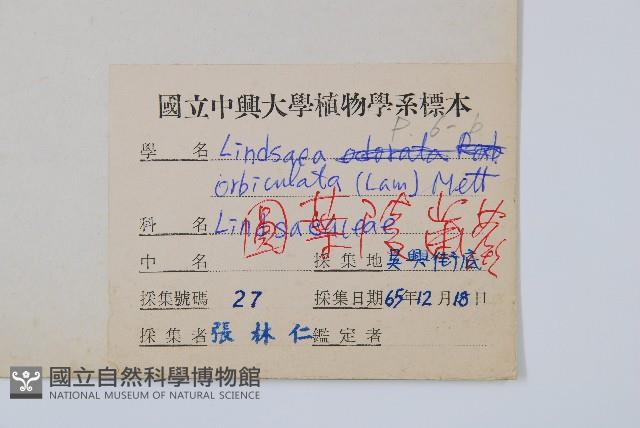 國立中興大學植物學系標本
P. 6-6
學名 Lindsaea odorata Roxb
orbiculata (Lam) Mett
科名 Lindsaeaceae
圓葉陵齒蕨
中名 採集地 吳興街底
採集號碼 27 採集日期 65年12月18日
採集者 張林仁 鑑定者
國立自然科學博物館
NATIONAL MUSEUM OF NATURAL SCIENCE